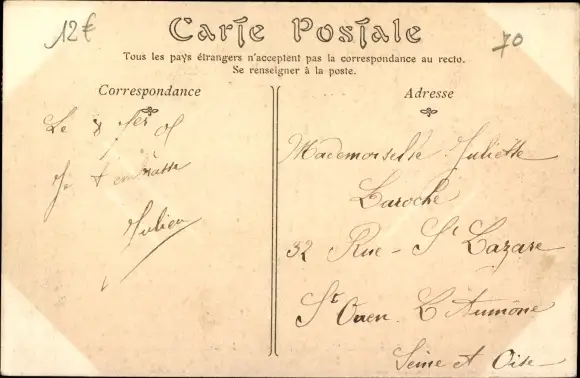 12€
Carte Postale
70
Tous les pays étrangers n'acceptent pas la correspondance au recto.
Se renseigner à la poste.
Correspondance
Le 8
Je t'embrasse
Julien
Adresse
Mademoiselle Juliette
Laroche
32 Rue - St Lazare
St Ouen L'Aumône
Seine et Oise